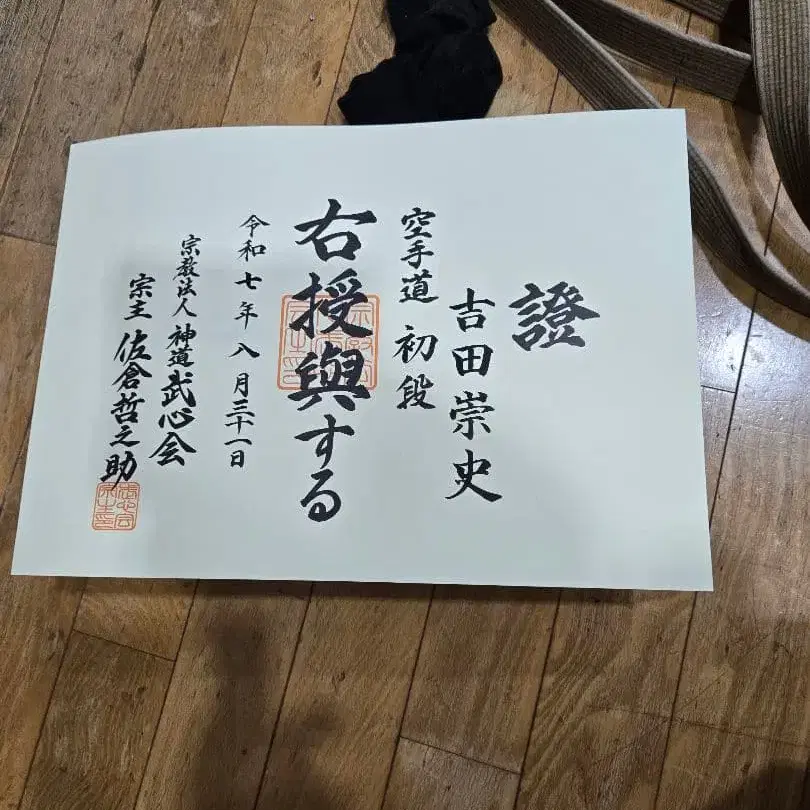 證
吉田崇史
空手道 初段
右授與する
令和七年八月三十一日
宗教法人 神道武心会
宗主 佐倉哲之助